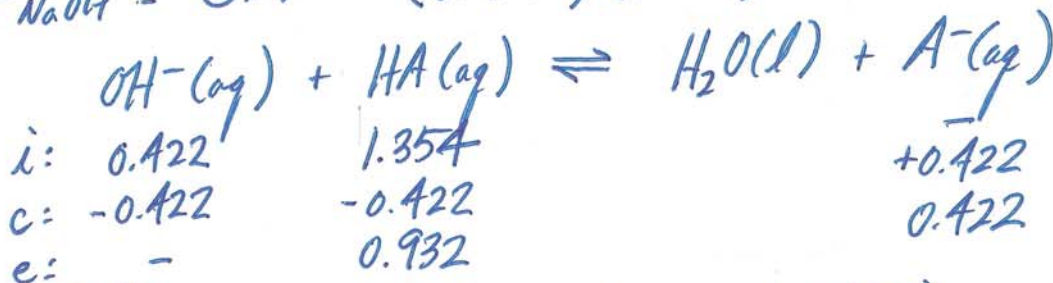 NaOH
OH⁻(aq) + HA(aq) ⇌ H₂O(l) + A⁻(aq)
i: 0.422 1.354 –
c: -0.422 -0.422 +0.422
e: – 0.932 0.422